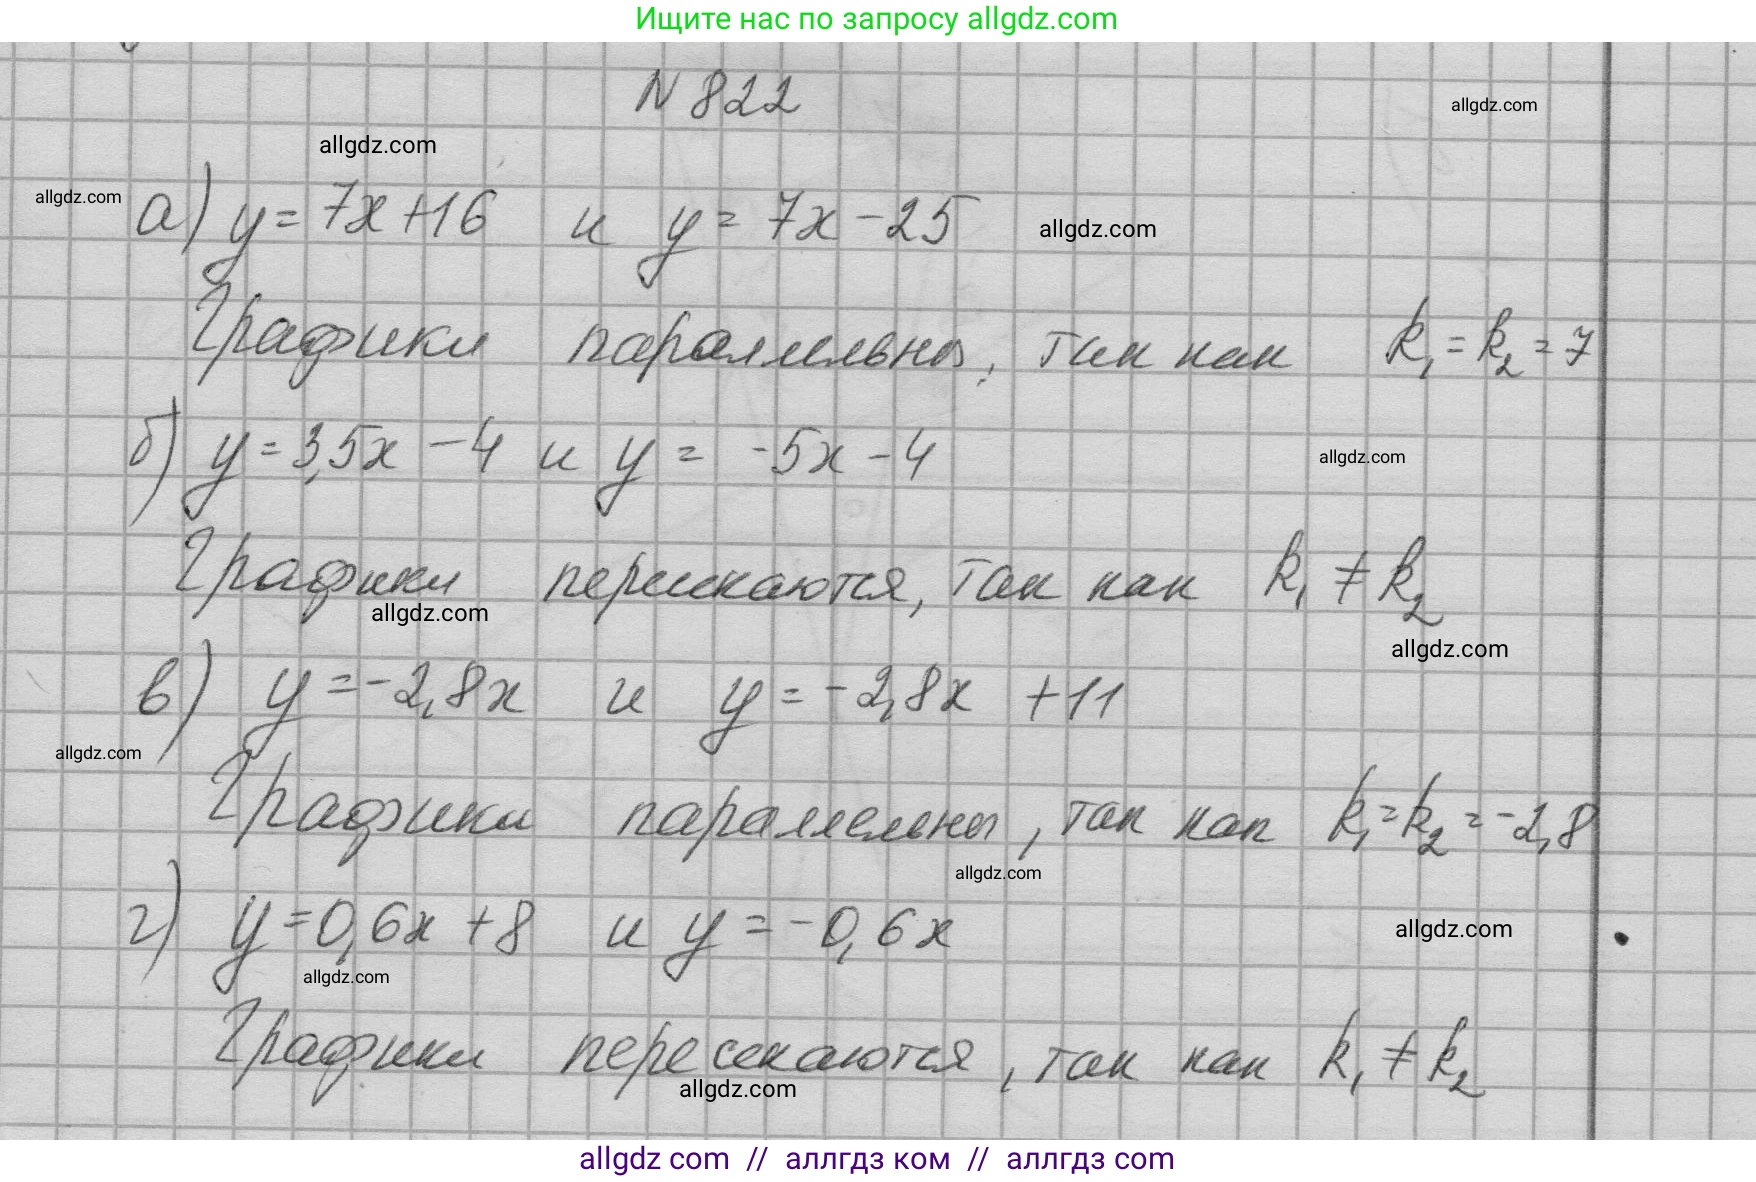 Ищите нас по запросу allgdz.com
N 822
allgdz.com
allgdz.com
allgdz.com
а) y = 7x + 16 и y = 7x - 25
allgdz.com
Графики параллельны, так как k₁ = k₂ = 7
б) y = 3,5x - 4 и y = -5x - 4
allgdz.com
Графики пересекаются, так как k₁ ≠ k₂
allgdz.com
allgdz.com
в) y = -2,8x и y = -2,8x + 11
allgdz.com
Графики параллельны, так как k₁ = k₂ = -2,8
allgdz.com
г) y = 0,6x + 8 и y = -0,6x
allgdz.com
allgdz.com
Графики пересекаются, так как k₁ ≠ k₂
allgdz.com
allgdz com // аллгдз ком // аллгдз com